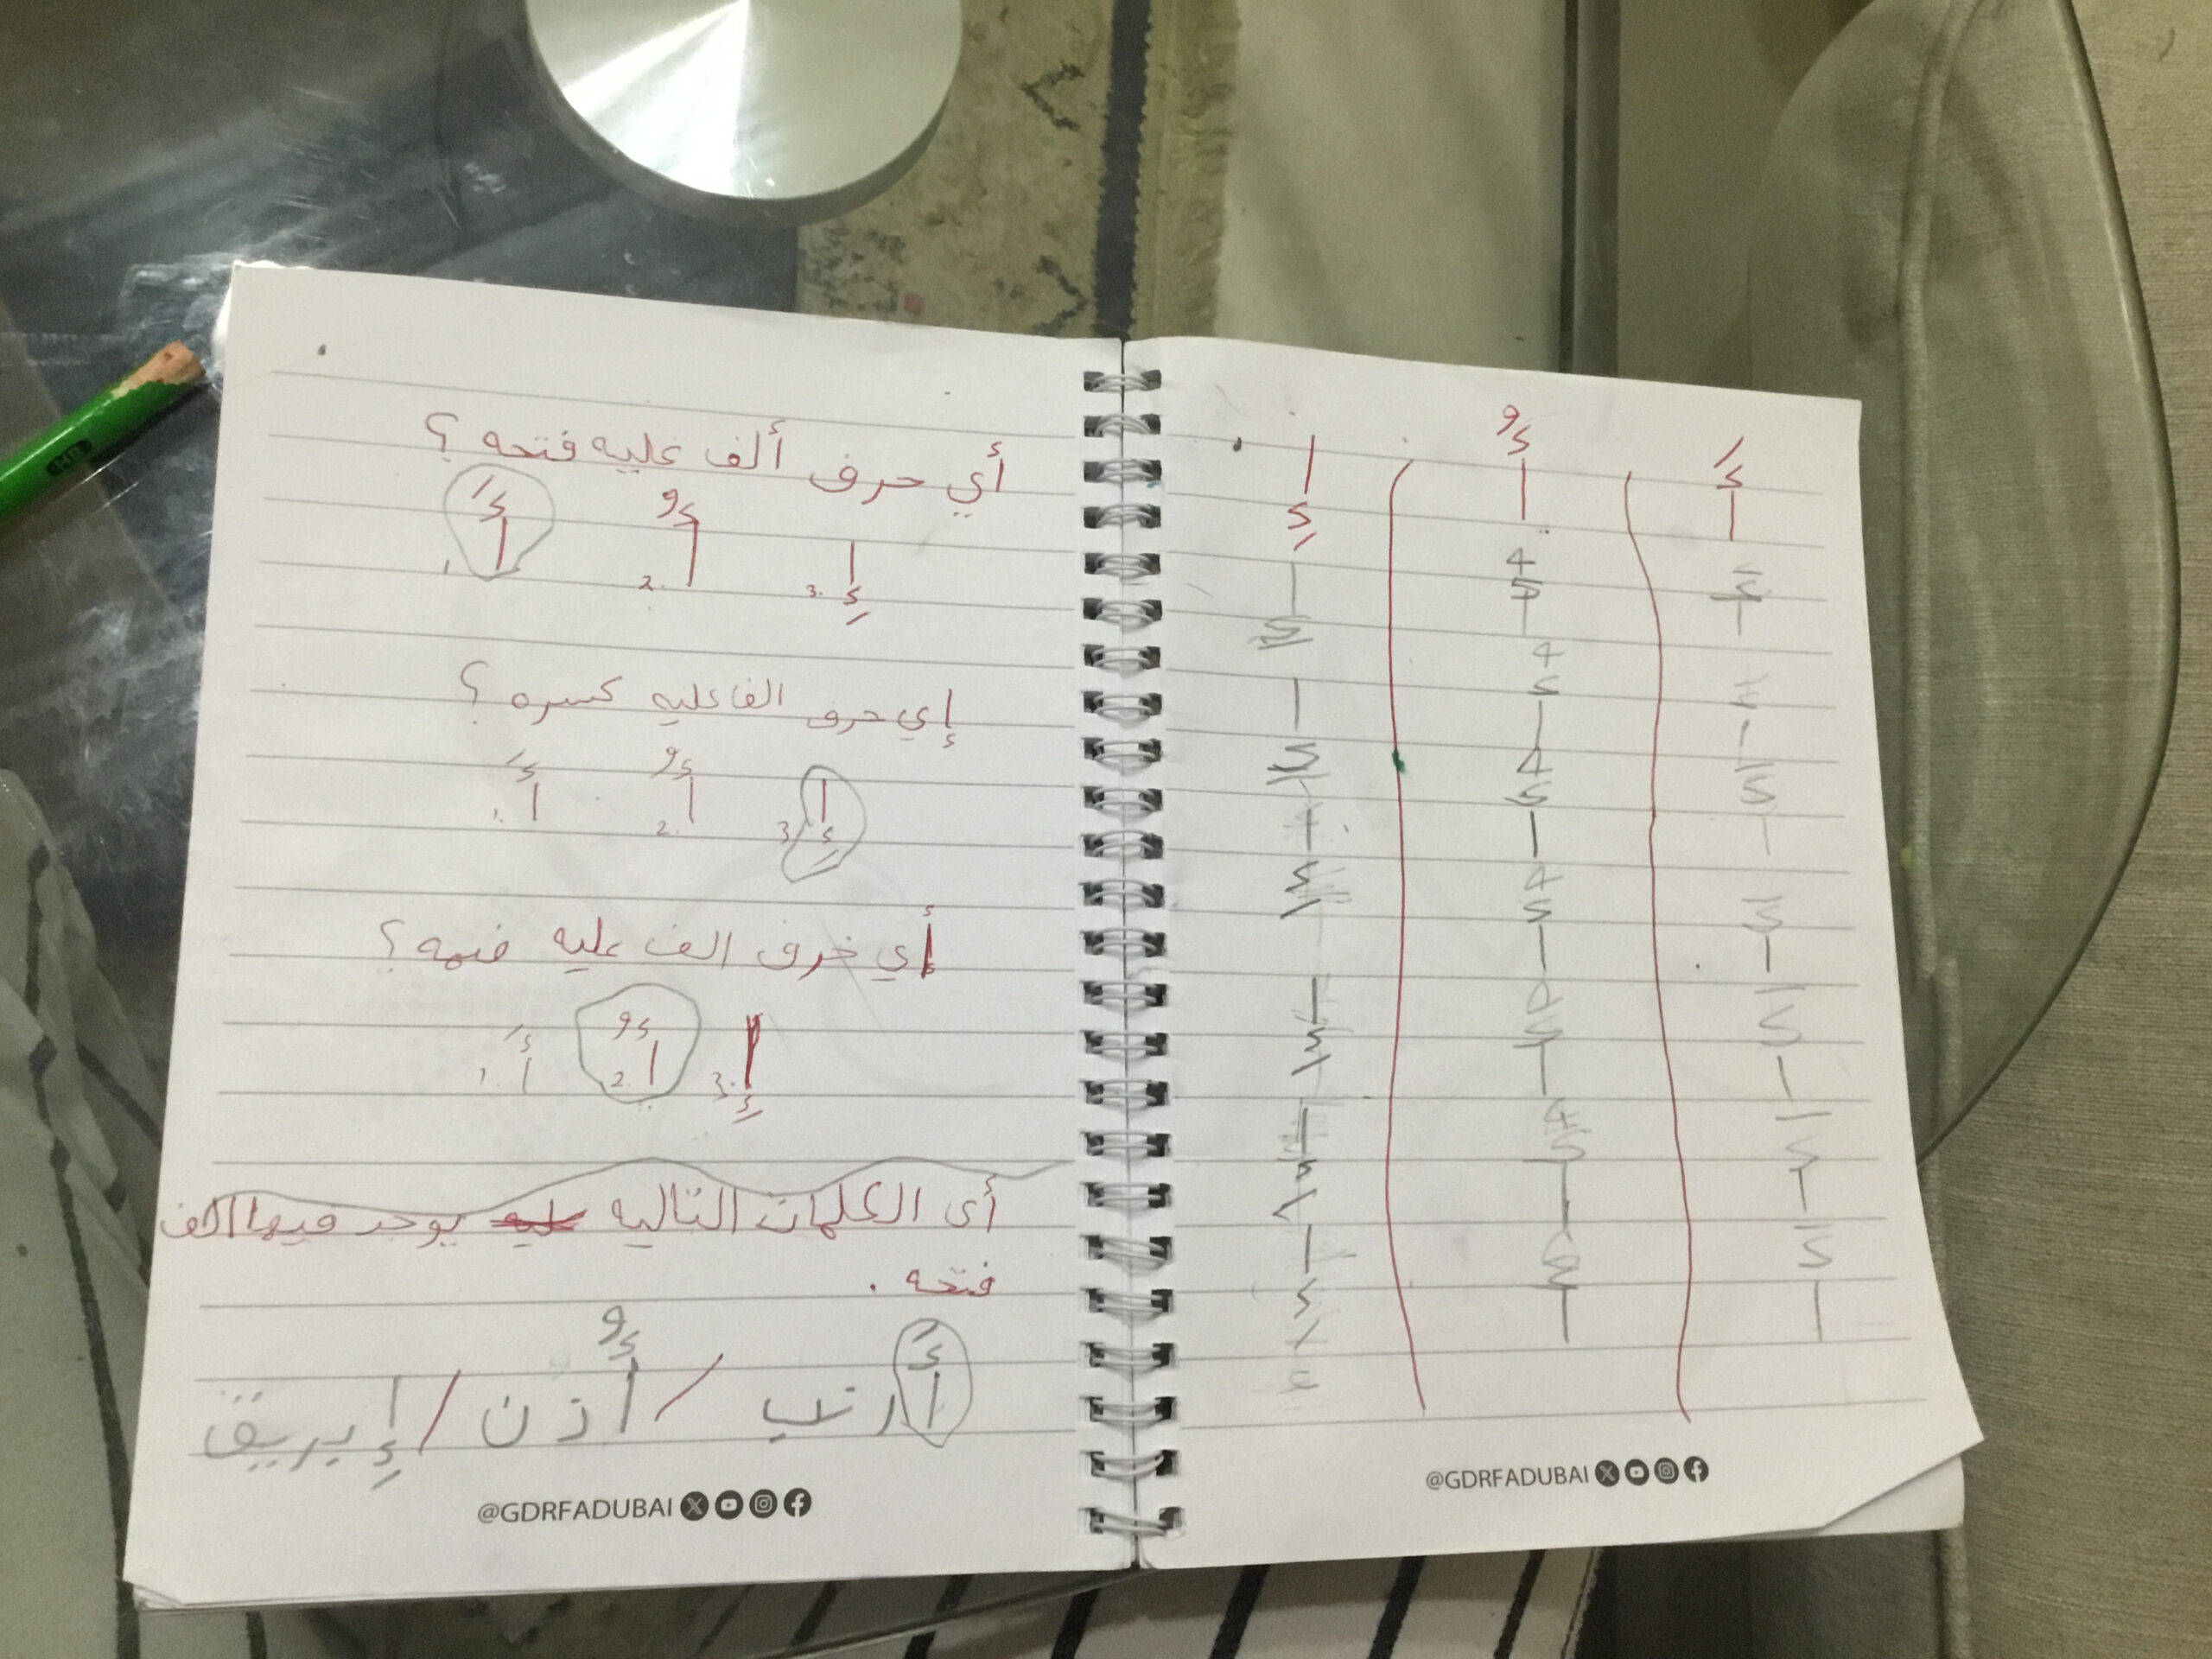 أي حرف ألف عليه فتحه ؟
1. أَ 2. أُ 3. إِ
إي حرف الفا عليه كسره ؟
1. أَ 2. أُ 3. إِ
أي خرف الف عليه ضمه ؟
1. أَ 2. أُ 3. إِ
أي الكلمات التاليه عليه يوجد فيها الف
فتحه .
أَرنب / أُذن / إِبريق
@GDRFADUBAI
أَ أُ إِ
أَ أُ إِ
أَ أُ إِ
أَ أُ إِ
أَ أُ إِ
أَ أُ إِ
أَ أُ إِ
أَ أُ إِ
@GDRFADUBAI